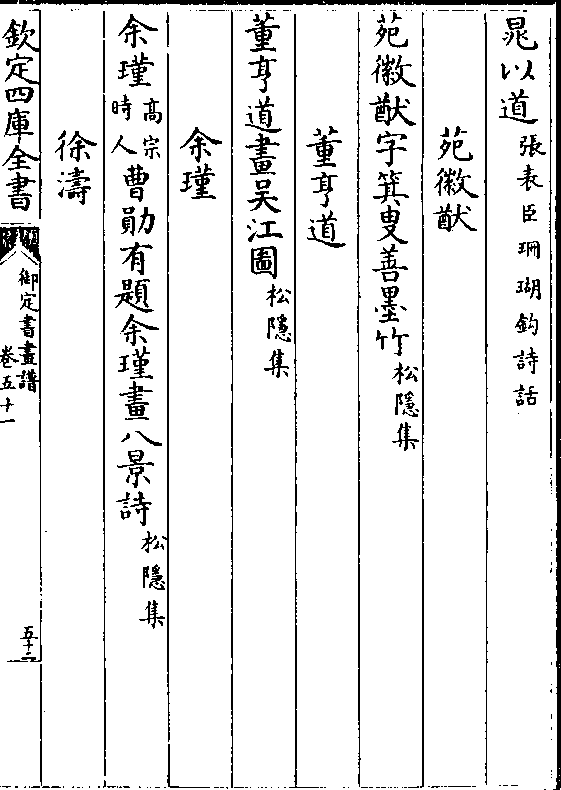 晁以道張表臣珊瑚鈎詩話
苑徽猷
苑徽猷字箕叟善墨竹松隱集
董亨道
董亨道畫吴江圖松隱集
余瑾
余瑾高宗時人曹勛有題余瑾畫八景詩松隱集
徐濤
欽定四庫全書 御定書畫譜 卷五十一 五十二